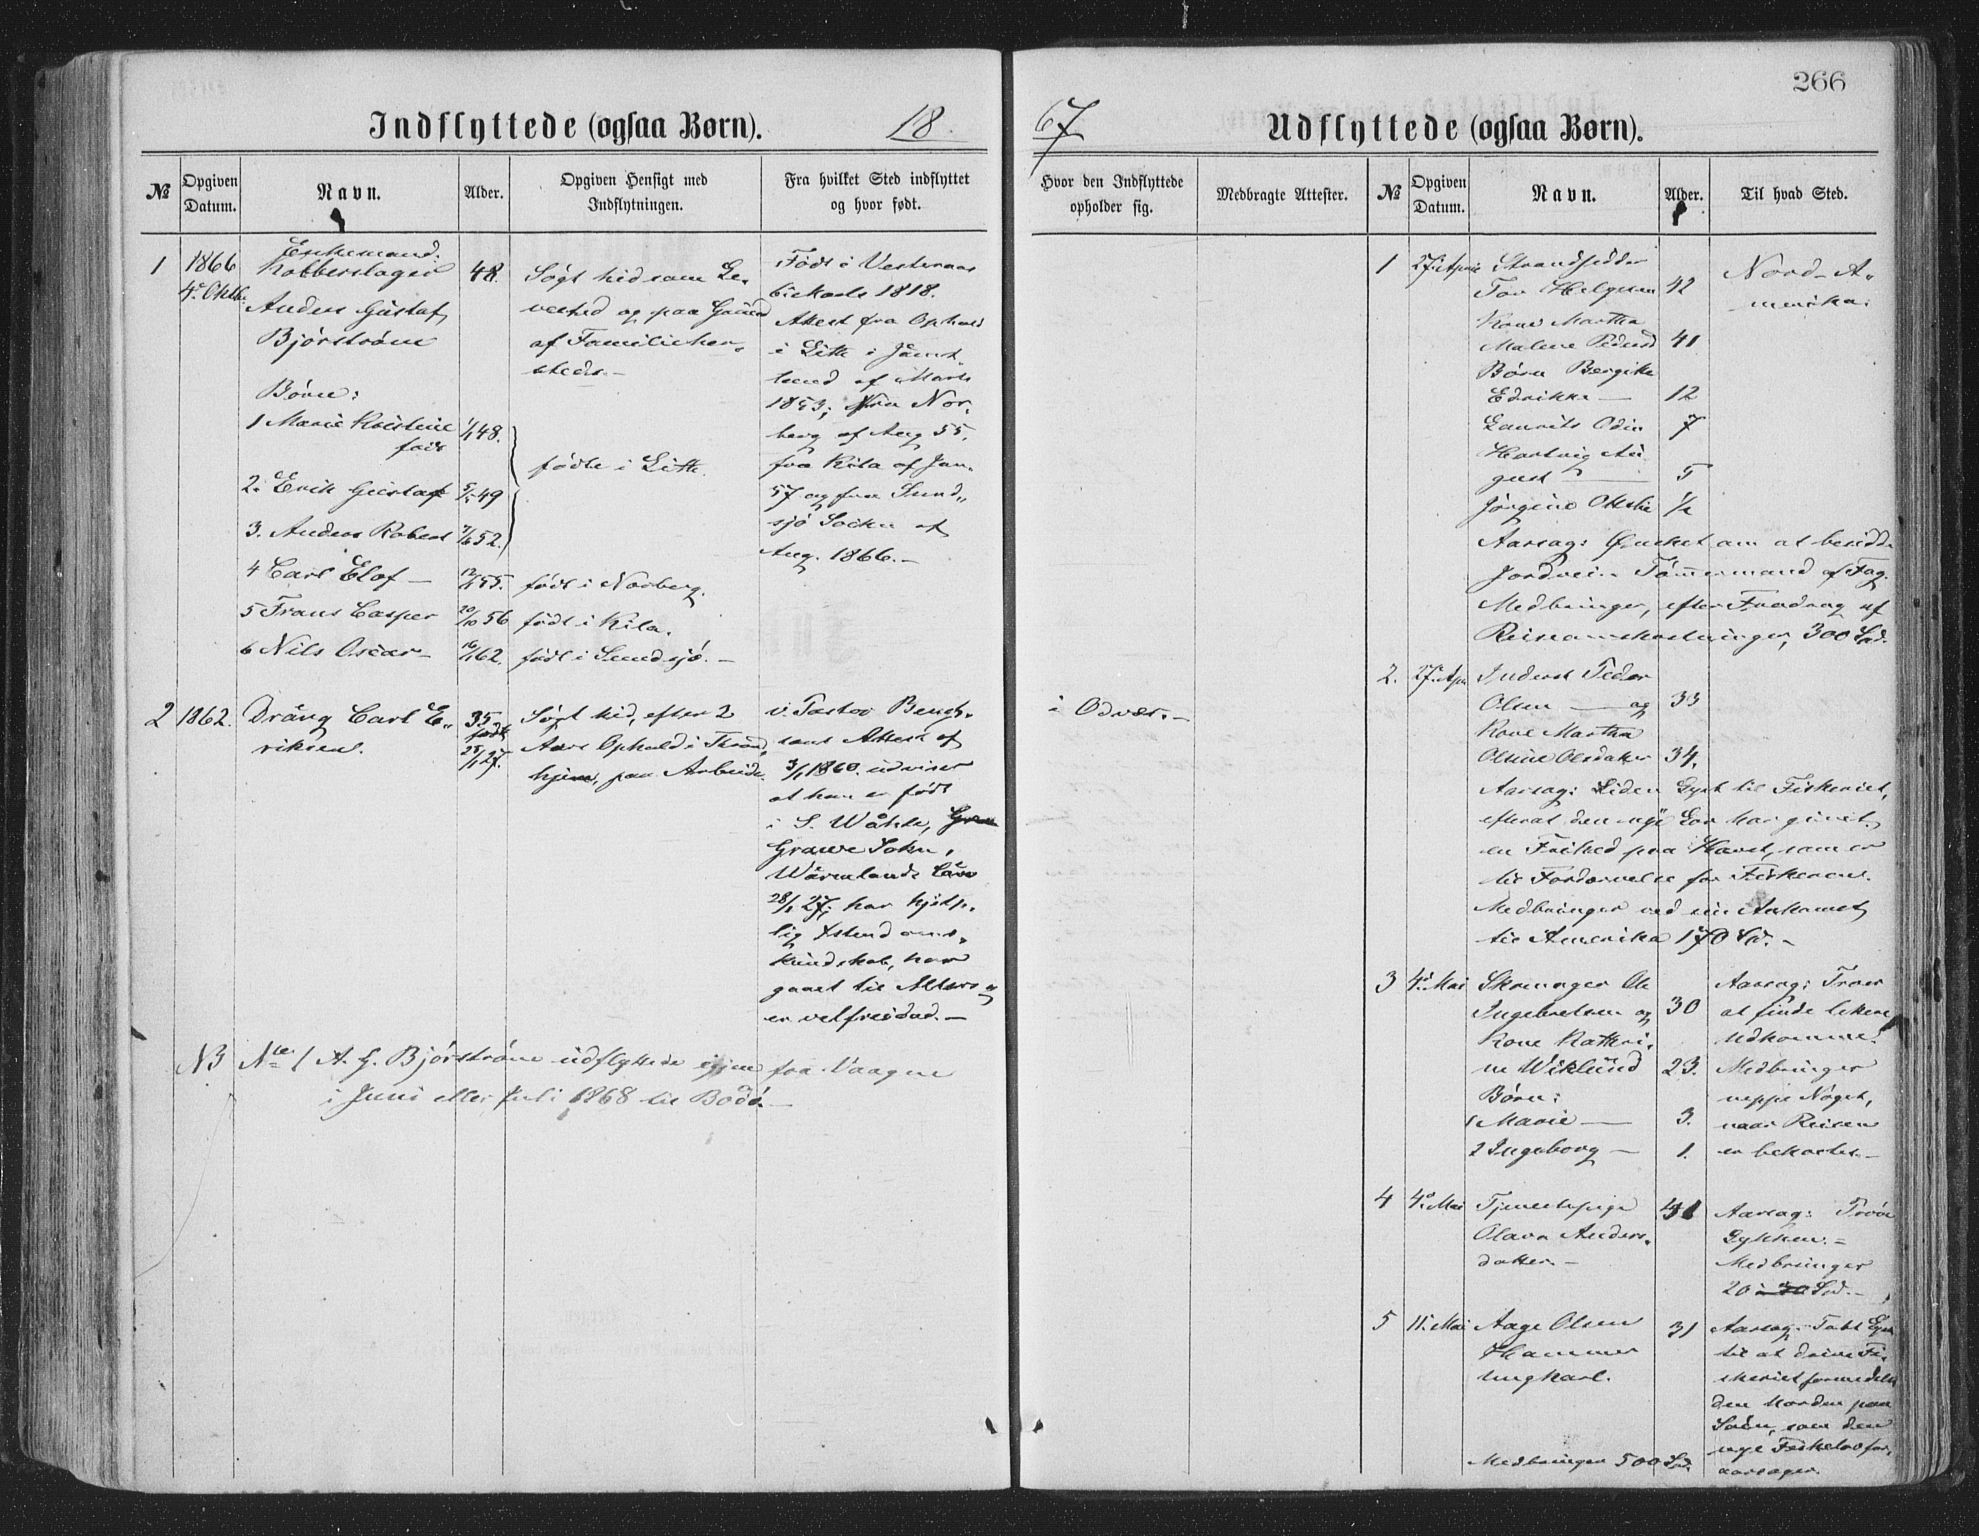 266
Indflyttede (ogsaa Børn).
18
67
Udflyttede (ogsaa Børn).
№
Opgiven Datum.
Navn.
Alder.
Opgiven Hensigt med Indflytningen.
Fra hvilket Sted indflyttet og hvor født.
Hvor den Indflyttede opholder sig.
Medbragte Attester.
№
Opgiven Datum.
Navn.
Alder.
Til hvad Sted.
1
1866
4de Oktb.
Enkemand:
Kobberslager
Anders Gustaf
Bjørstrøm
48.
Børn:
1 Marie Kristine
født
1/1 48.
2. Erik Gustaf
49
3. Anders Robert
52.
4 Carl Elof —
55.
5 Frans Casper
20/10 56
6 Nils Oscar —
62.
Søgt hid som Le-
vested og paa Grund
af Familie
føдte i Litt
født i Norberg.
født i Kila.
født i Sundsjö. —
Født i Vesteraas
1818.
Attest fra Ophold
i Litt i Jämt-
land af Marts
1853; fra Nor-
berg af Aug 55,
fra Kila af Jan.
57 og fra Sund-
sjö Socken af
Aug. 1866. —
2
1862.
Dräng Carl E-
riksen.
35
født
27.
Søgt hid, efter 2
Aars Ophold i Trond-
hjem, paa Arbeide.
v. Pastor Bengt-
sons Attest af
3/1 1860. udviser
at han er født
i S. Wåhle,
Grawe Sokn,
Wärmlands Län
28/1 27; har hjelp-
lig
kundskab, har
gaaet til Alters og
er velfreidad. —
i Odvær. —
NB No 1 A. G. Bjørstrøm udflyttede igjen fra Vaagan
i Juni eller Juli 1868 til Bodø. —
1
27. April
Strandsidder
Tor Helgesen
42
Nord-A-
merika.
Kone Martha
Malene Pedersd
41
Børn Bergithe
Edrikke —
12
Laurits Odin
7
Hartvig Au-
gust —
5
Jørgine
1/2
Aarsag: Ønsket om at besidde
Jordvei. Tømmermand af Fag.
Medbringer, efter Fradrag af
Reiseomkostninger, 300 Spd.
2.
27. Apr.
Inderst Peder
Olsen — og
33
Kone Martha
Olsdatter
34.
Aarsag: Liden Lyst til Fiskeriet,
efterat den nye Lov har givet
en Frihed paa Havet, som er
til Fordærvelse for Fiskeriet.
Medbringer ved sin Ankomst
til Amerika 170 Spd. —
3
4. Mai
Skomager Ole
Ingebretsen og
30
Kone Kathri-
ne Wiklund
23.
Børn:
1 Marie —
3.
2 Ingeborg —
1.
Aarsag: Troer
at finde lettere
Udkomme.
Medbringer
neppe Noget,
naar Reisen
er bekostet. —
4
4. Mai
Tjenestepige
Olava Anders-
datter. —
Aarsag: Prøve
Lykken. =
Medbringer
20 Spd. —
5
11. Mai
Aage Olsen
Hammer
ungkarl.
31
Aarsag: Tabt Lyst
til at drive Fi-
skeriet formedelst
den Uorden paa
Søen, som den
nye Fiskelov for-
aarsager.
Medbringer 500 Spd.